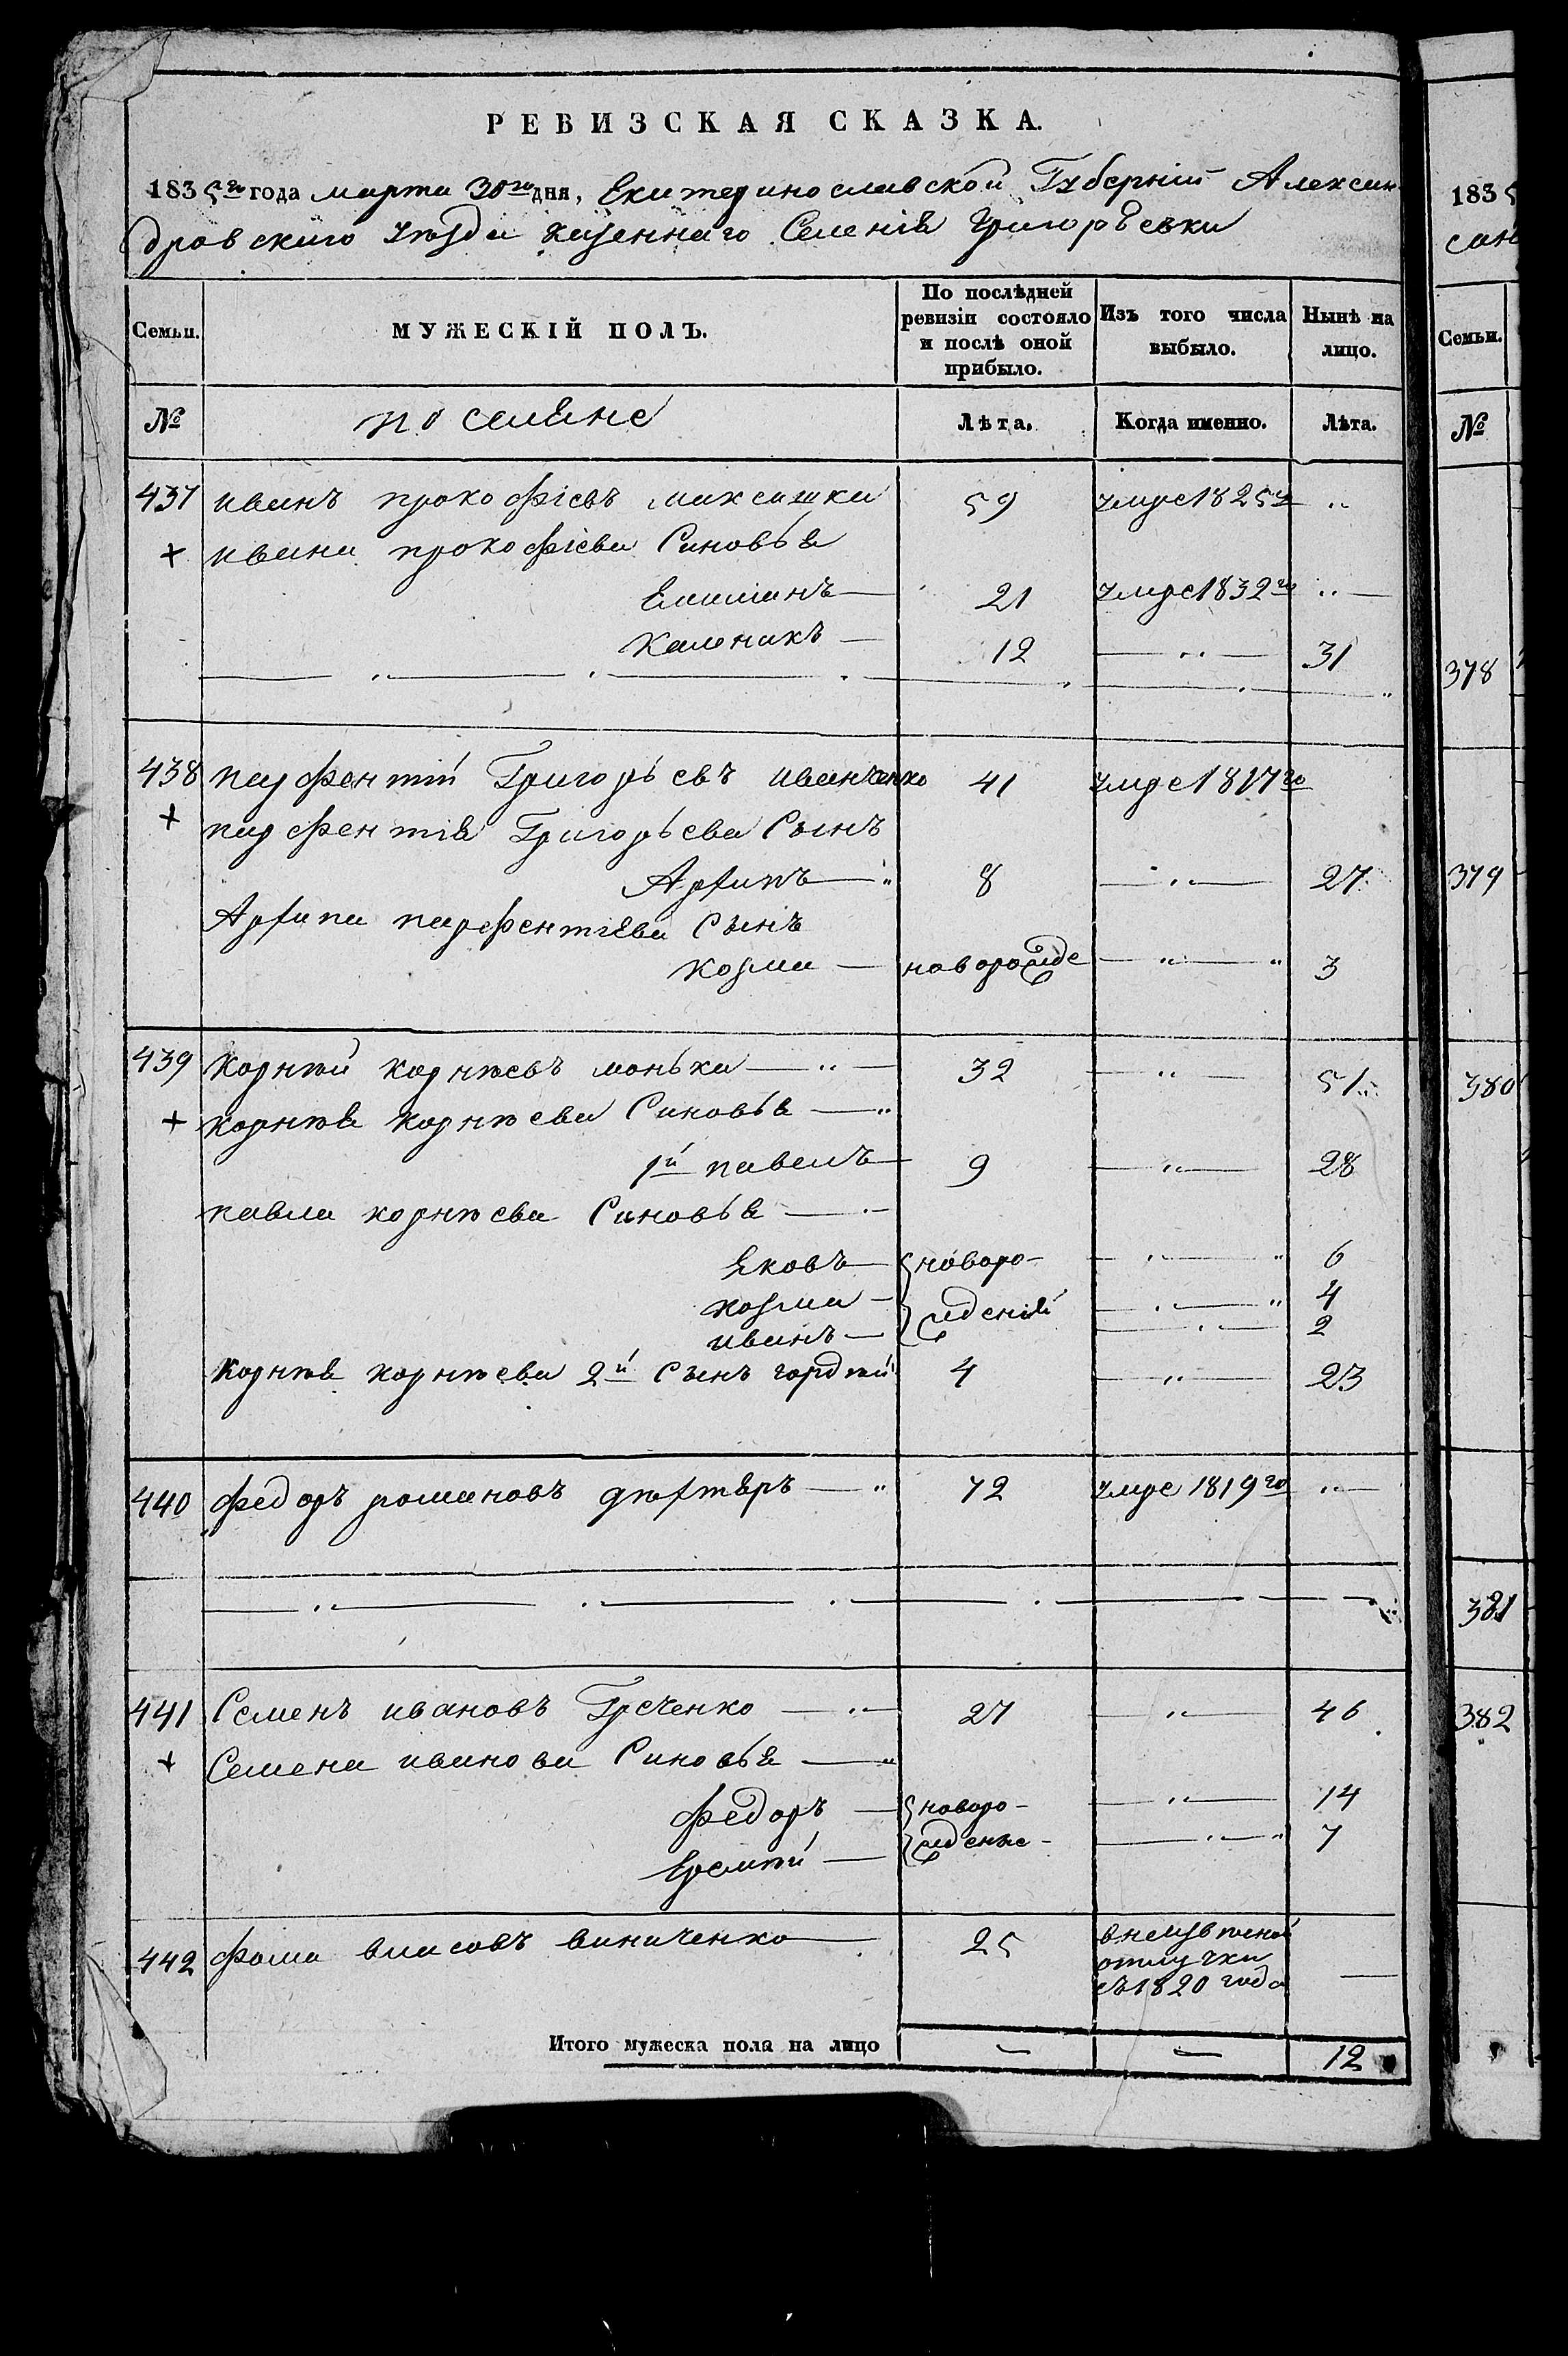 РЕВИЗСКАЯ СКАЗКА.
1835го года марта 30го дня, Екатеринославской Губерніи Алексан
дровскаго уѣзда казеннаго Селенія Григорьевки
Семьи. МУЖЕСКІЙ ПОЛЪ. По послѣдней ревизіи состояло и послѣ оной прибыло. Изъ того числа выбыло. Нынѣ на лицо.
№ поселяне Лѣта. Когда именно. Лѣта.
437 иванъ прокофіевъ максимка 59 умре 1825го
+ ивана прокофіева Синовья
Емилианъ 21 умре 1832го
Каленикъ 12 31
438 парфентій Григорьевъ иванченко 41 умре 1817го
+ парфентія Григорьева Сынъ
Архипъ 8 27
Архипа парфентіева Сынъ
Козма новорожде 3
439 Корнѣй корнѣевъ монька 32 51
+ корнѣя корнѣева Синовья
1й павелъ 9 28
павла корнѣева Синовья
Яковъ новоро- 6
козма жденій 4
иванъ 2
Корнѣя корнѣева 2й Сынъ гордѣй 4 23
440 федоръ романовъ дѣхтяръ 72 умре 1819го
441 Семенъ ивановъ Греченко 27 46
+ Семена иванова Синовья
Федоръ новоро- 14
Еремѣй жденіе- 7
442 фома власовъ виниченко 25 в неизвѣсной
отлучки
съ 1820 года
Итого мужеска пола на лицо 12
183
сан
Семьи.
№
378
379
380
381
382